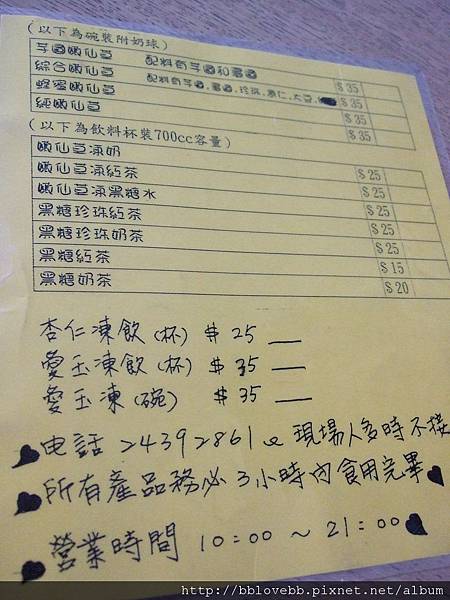 (以下為碗裝附奶球)
芋圓嫩仙草 配料有芋圓和番圓 $35
綜合嫩仙草 配料有芋圓,番圓,珍珠,薏仁,大豆, $35
蜂蜜嫩仙草 $35
純嫩仙草 $35
(以下為飲料杯裝700cc容量)
嫩仙草凍奶 $25
嫩仙草凍紅茶 $25
嫩仙草凍黑糖水 $25
黑糖珍珠紅茶 $25
黑糖珍珠奶茶 $25
黑糖紅茶 $15
黑糖奶茶 $20
杏仁凍飲(杯) $25
愛玉凍飲(杯) $35
愛玉凍(碗) $35
电話 24392861 現場人多時不接
所有產品務必3小時內食用完畢
營業時間 10:00~21:00
http://bblovebb.pixnet.net/album